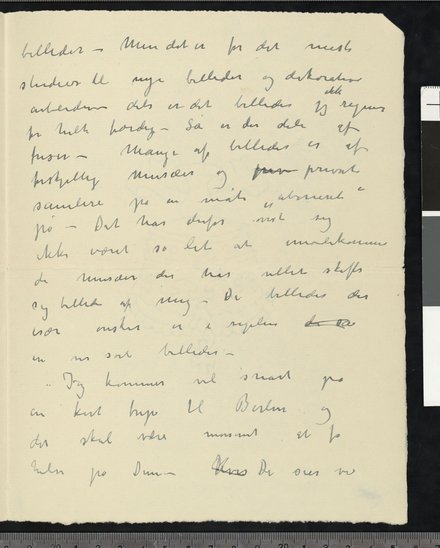 billeder – Men det er for det meste
studier til nye billeder og dekorative
arbeider – dels er det billeder jeg ikke regner
for helt færdig – Så er der dele af
friser – Mange af billeder er af
forskjellig museer og privat
samlere på en måte „abonneret“
på – Det har derfor vist sig
ikke været så let at imøtekomme
de museer der har villet skaffe
sig billeder af mig – De billeder der
især ønskes er i regelen
en vis sort billeder –
Jeg kommer vel snart på
en kort trip til Berlin og
det skal være morsomt at få
hilse på Dem – De sees ve